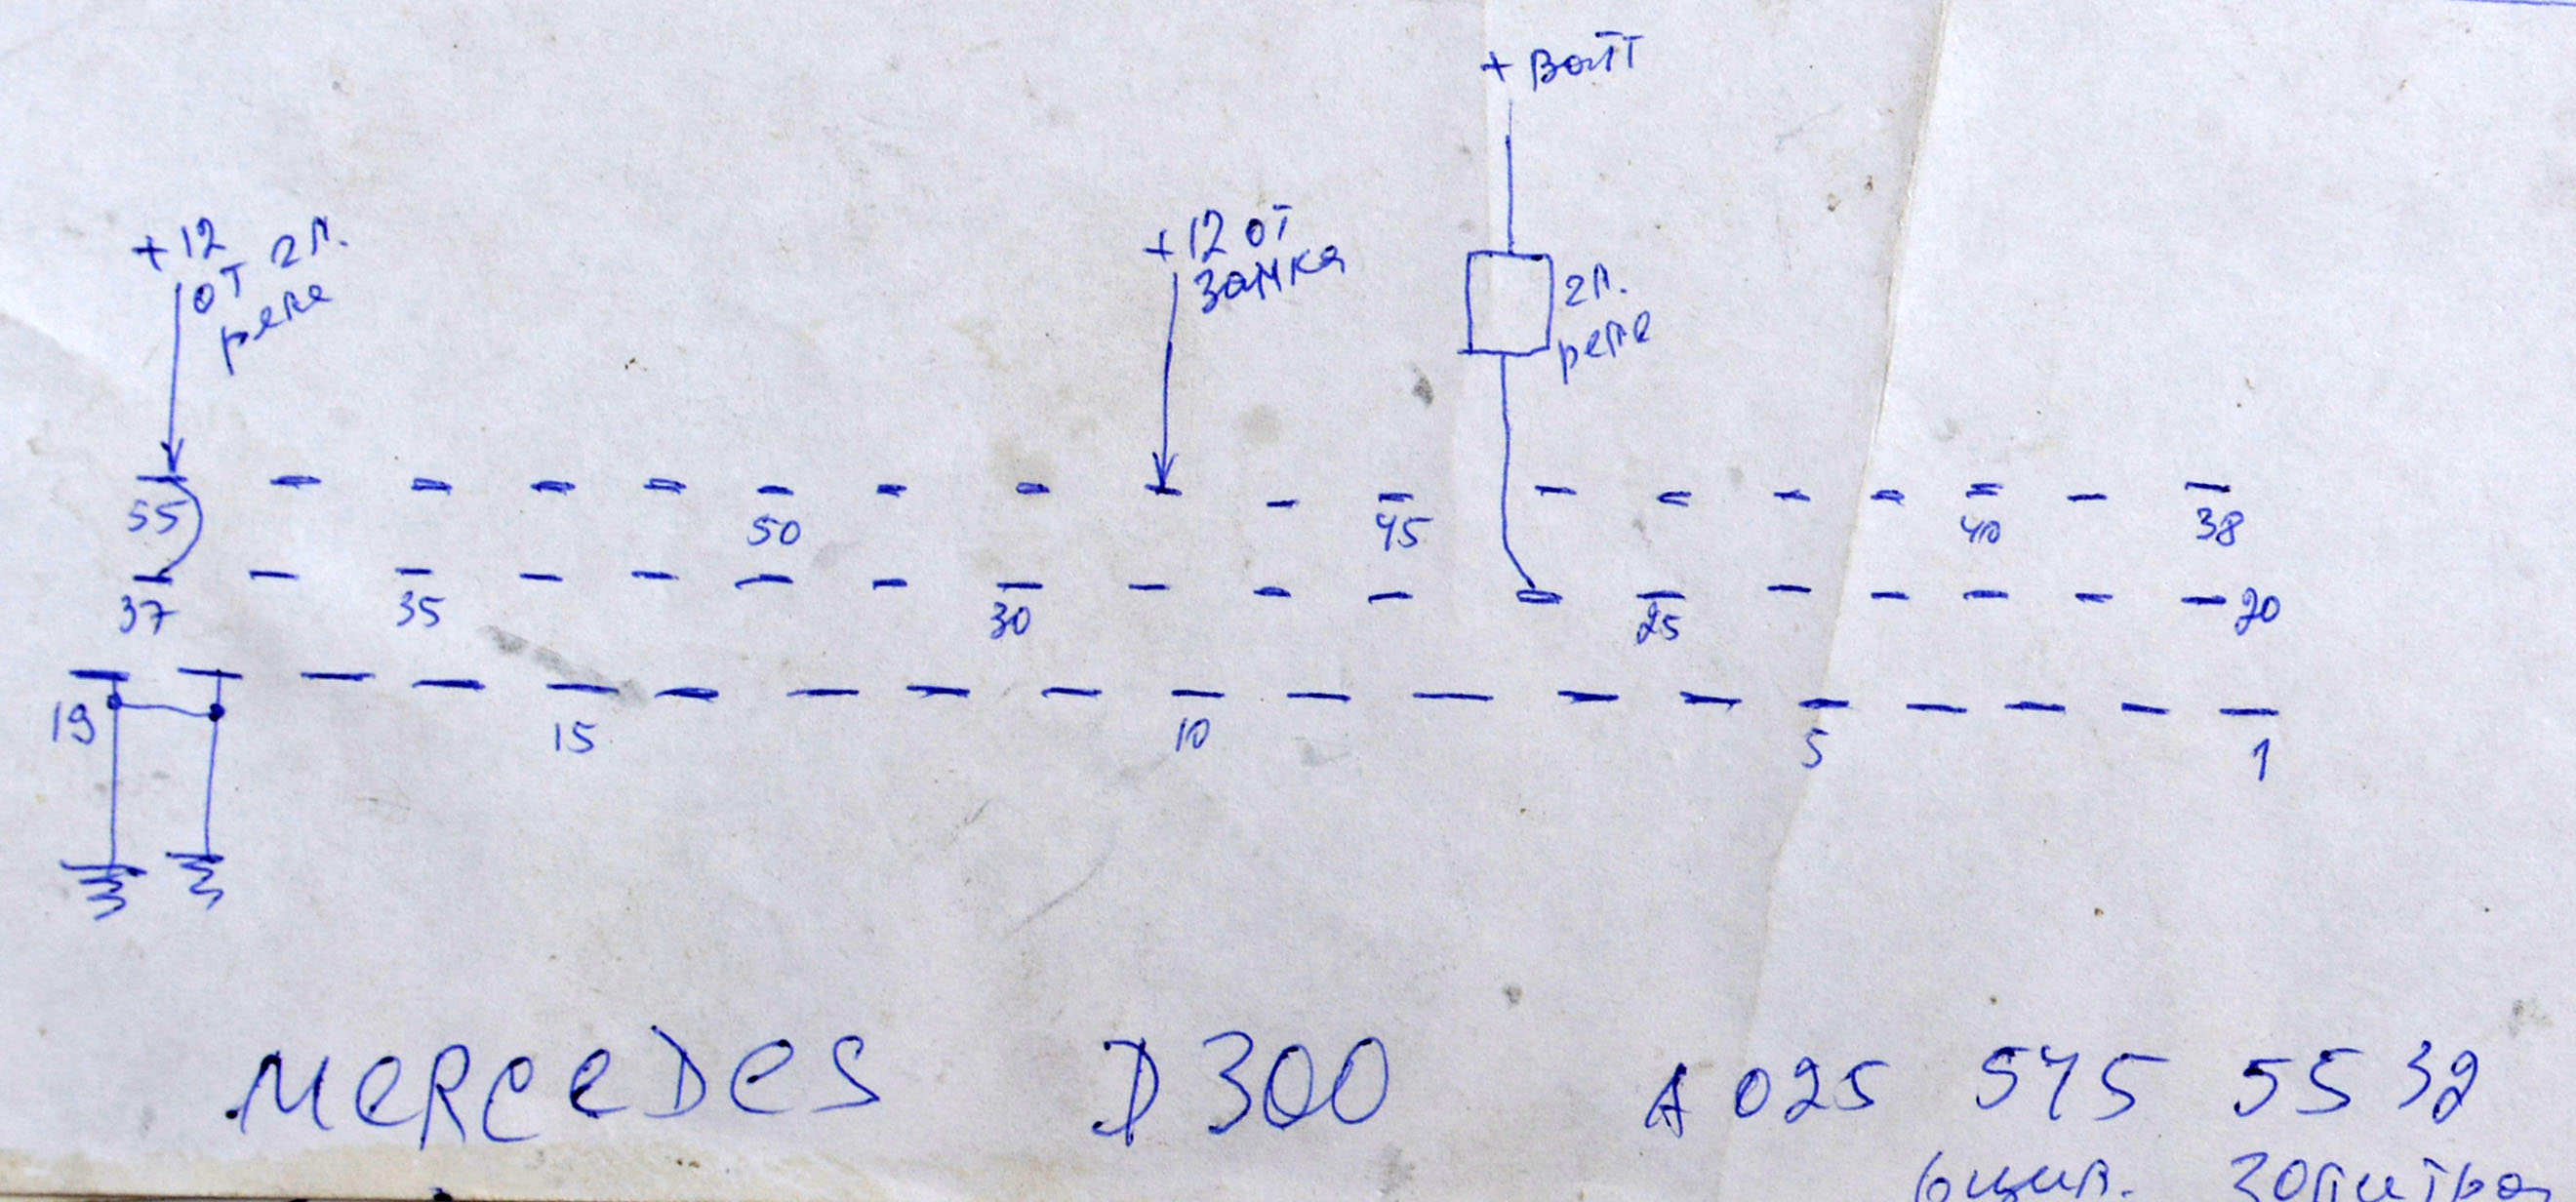 + Батт
+12
от гл.
реле
+12 от
замка
гл.
реле
55 50 45 40 38
37 35 30 25 20
19 15 10 5 1
MERCEDES D300 A 025 545 55 32
6цил. 30литра